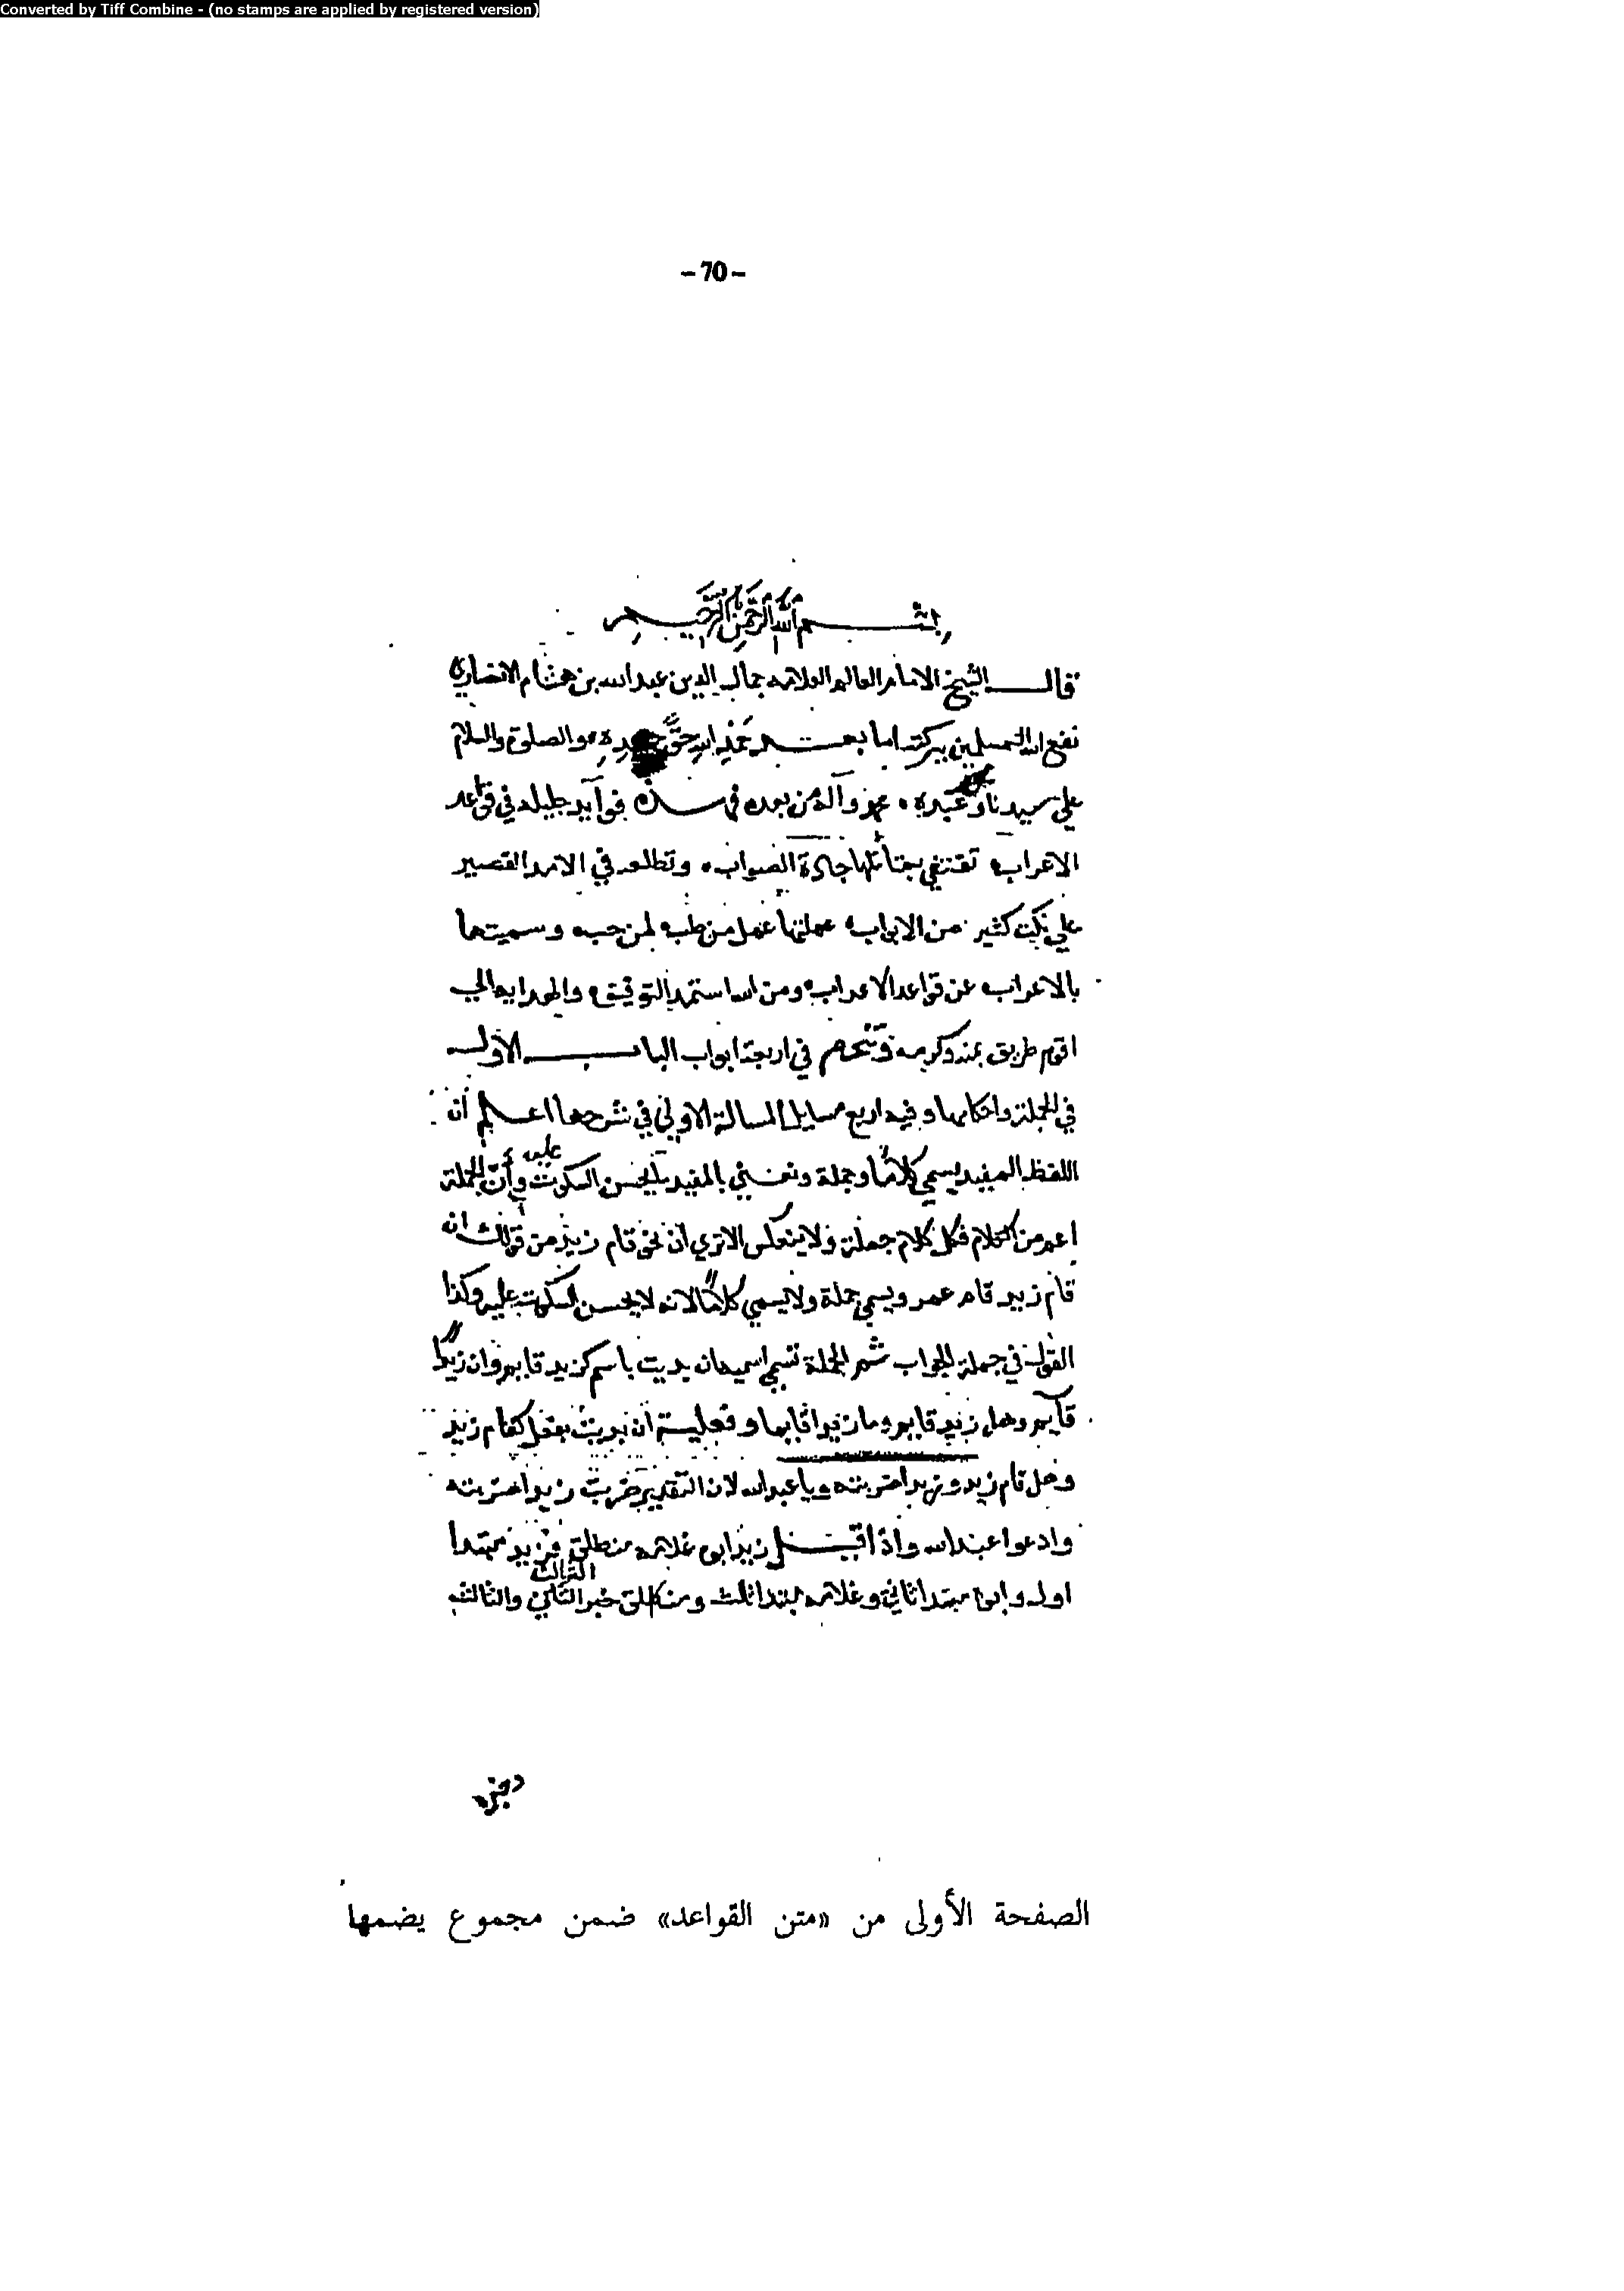 Converted by Tiff Combine - (no stamps are applied by registered version)
- 70 -
بسم الله الرحمن الرحيم
قال الشيخ الامام العالم العلامه جمال الدين عبد الله بن هشام الانصاري
نفع الله المسلمين ببركته اما بعد حمد الله حق حمده والصلوة والسلام
علي سيدنا وعبده محمد وآله من بعده فهذه فوآيد جليله في قواعد
الاعراب تقتفي بمتأملها جادة الصواب وتطلعه في الامد القصير
علي نكت كثير من الابواب عملتها عمل من طب لمن حب وسميتها
بالاعراب عن قواعد الاعراب ومن الله استمد التوفيق والهدايه الي
اقوم طريق بمنه وكرمه وتنحصر في اربعة ابواب الباب الاول
في الجملة واحكامها وفيه اربع مسايل المسالة الاولي في شرحها اعلم أن
اللفظ المفيد يسمي كلامًا وجملة ونعني بالمفيد ما يحسن السكوت عليه وأن الجملة
اعم من الكلام فكل كلام جملة ولا ينعكس الا تري ان نحو قام زيد من قولك ان
قام زيد قام عمرو يسمي جملة ولا يسمي كلامًا لانه لا يحسن السكوت عليه وكذا
القول في جملة الجواب ثم الجملة تسمي اسميه ان بديت باسم كزيد قايم وان زيدًا
قآيم وهل زيد قايم وما زيد قايما وفعلية ان بديت بفعل كقام زيد
وهل قام زيد وزيدا ضربته ويا عبد الله لان التقدير ضربت زيدا ضربته
وادعوا عبد الله واذا قيل زيد ابوه غلامه منطلق فزيد مبتدا
اول وابوه مبتدا ثاني وغلامه مبتدا ثالث ومنطلق خبر الثالث الثاني والثالث
وخبره
الصفحة الأولى من «متن القواعد» ضمن مجموع يضمها